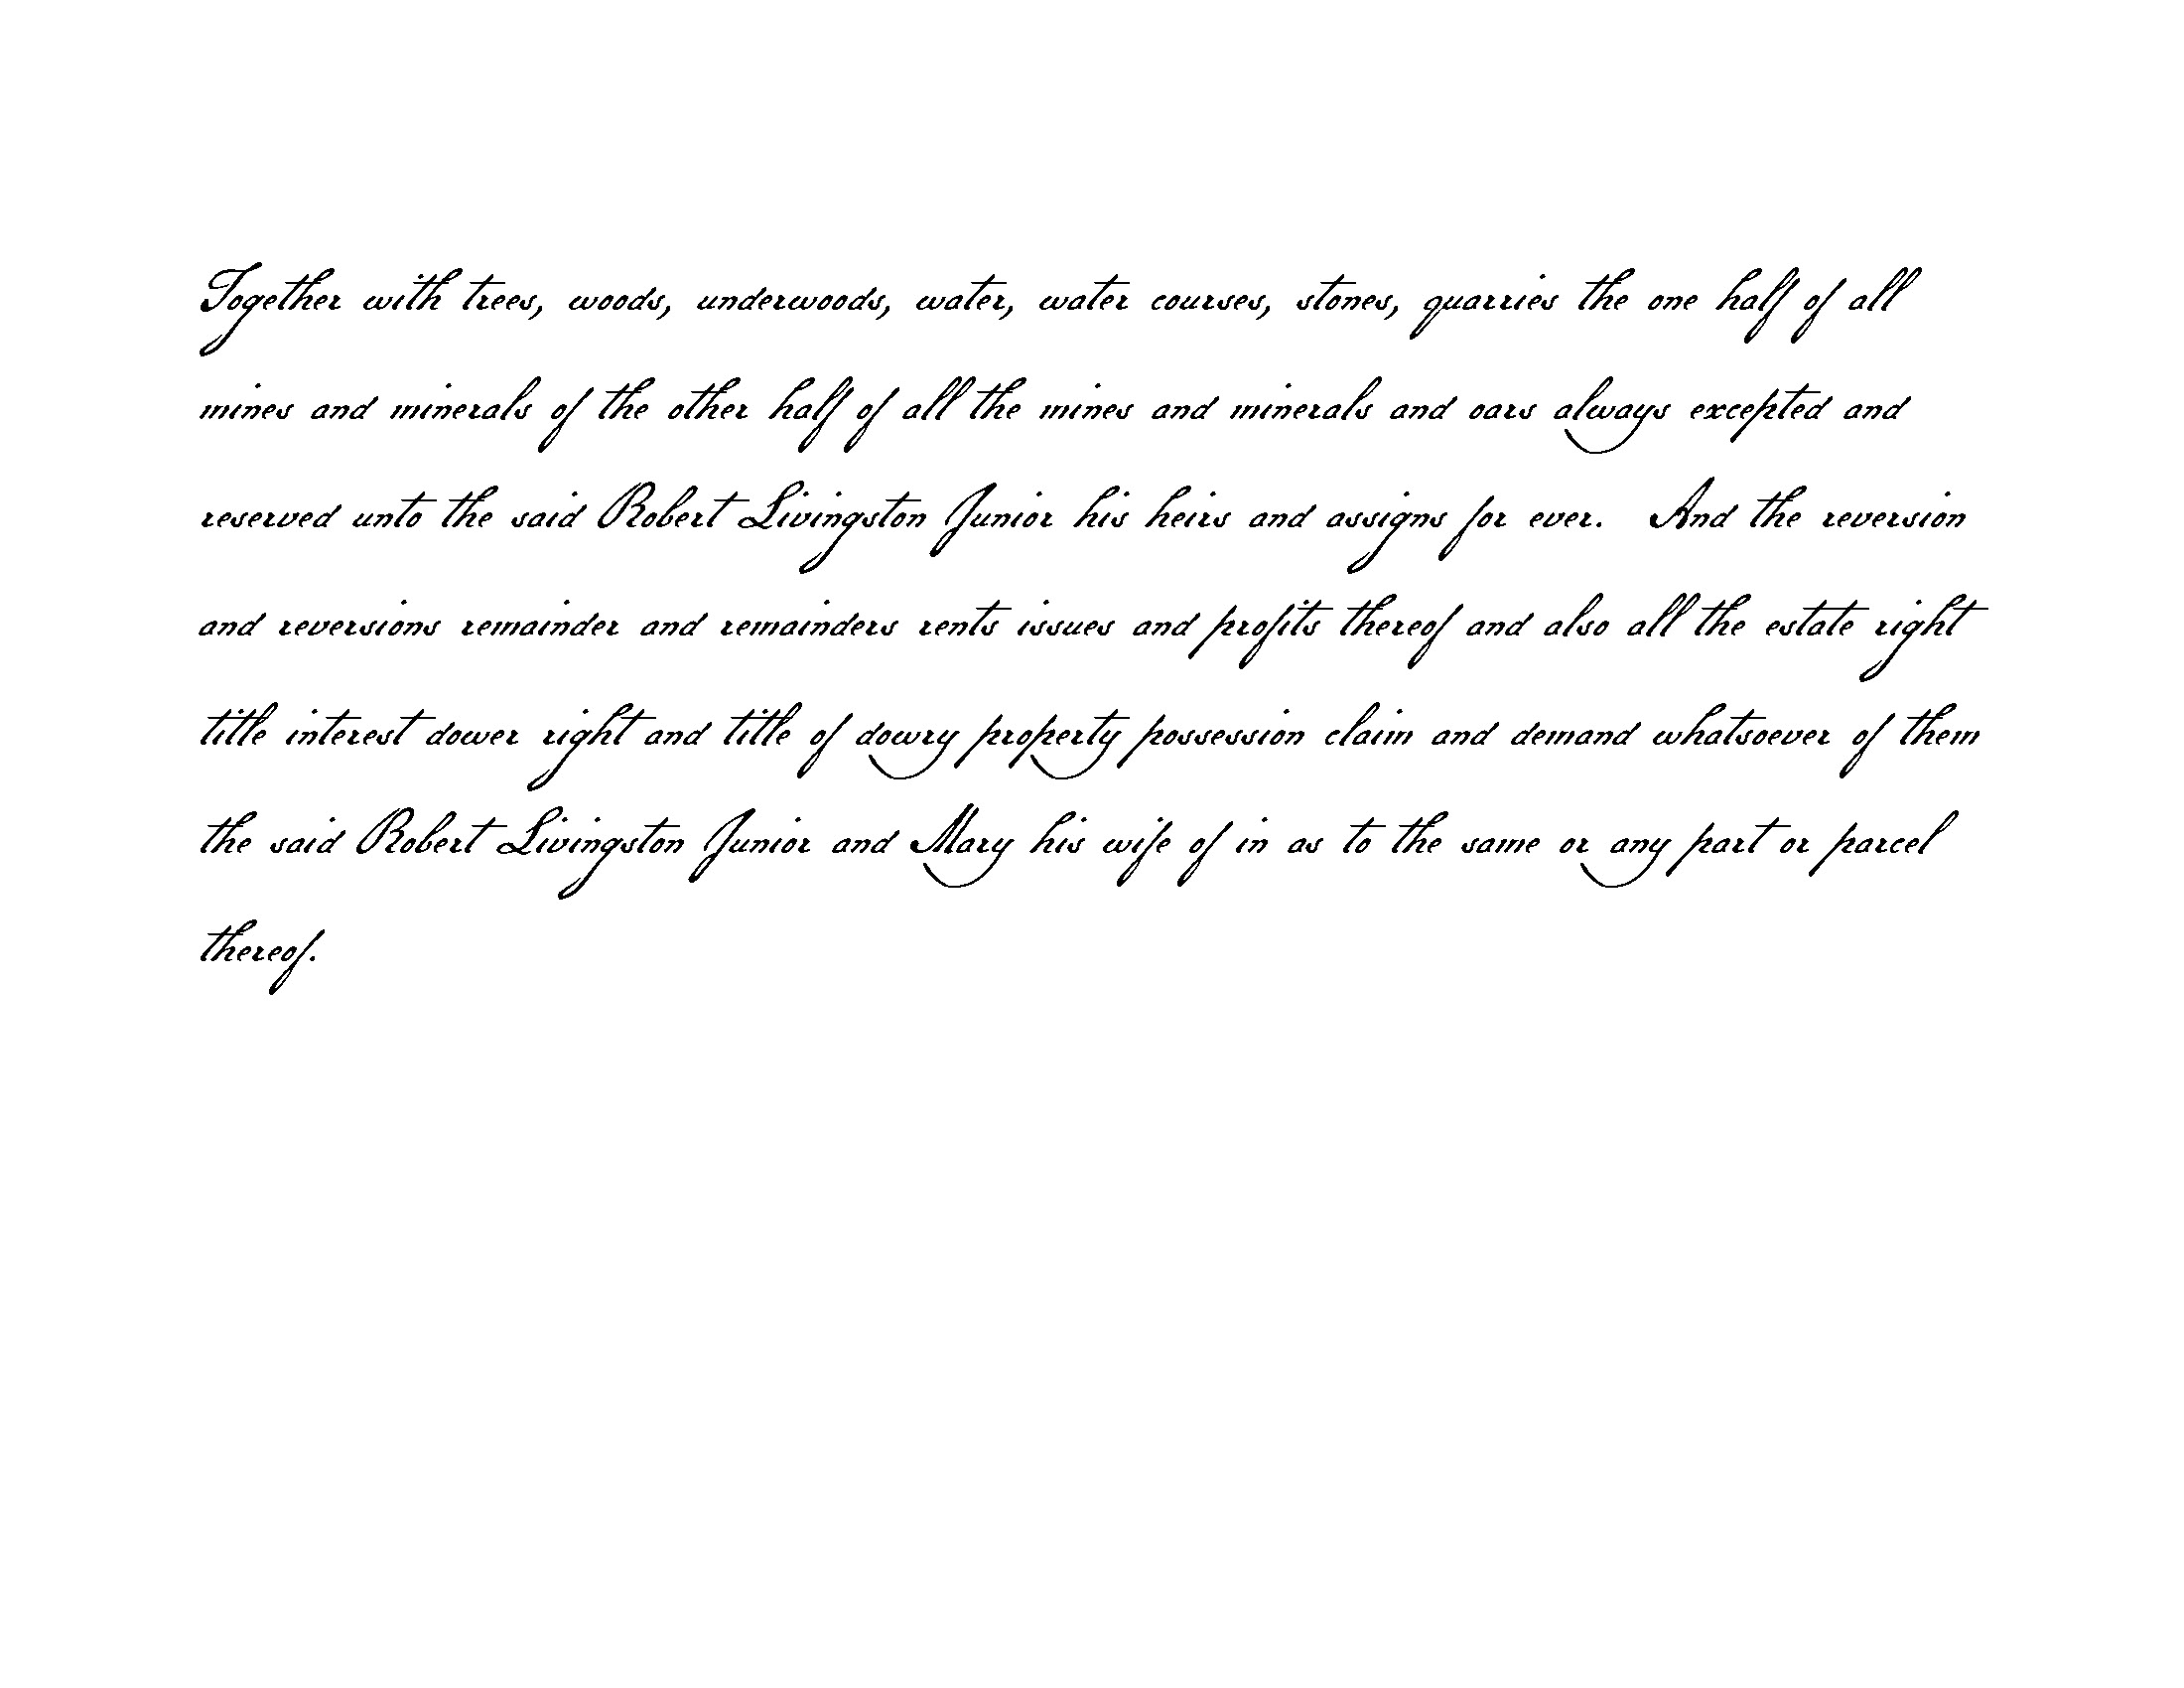 Together with trees, woods, underwoods, water, water courses, stones, quarries the one half of all
mines and minerals of the other half of all the mines and minerals and oars always excepted and
reserved unto the said Robert Livingston Junior his heirs and assigns for ever. And the reversion
and reversions remainder and remainders rents issues and profits thereof and also all the estate right
title interest dower right and title of dowry property possession claim and demand whatsoever of them
the said Robert Livingston Junior and Mary his wife of in as to the same or any part or parcel
thereof.